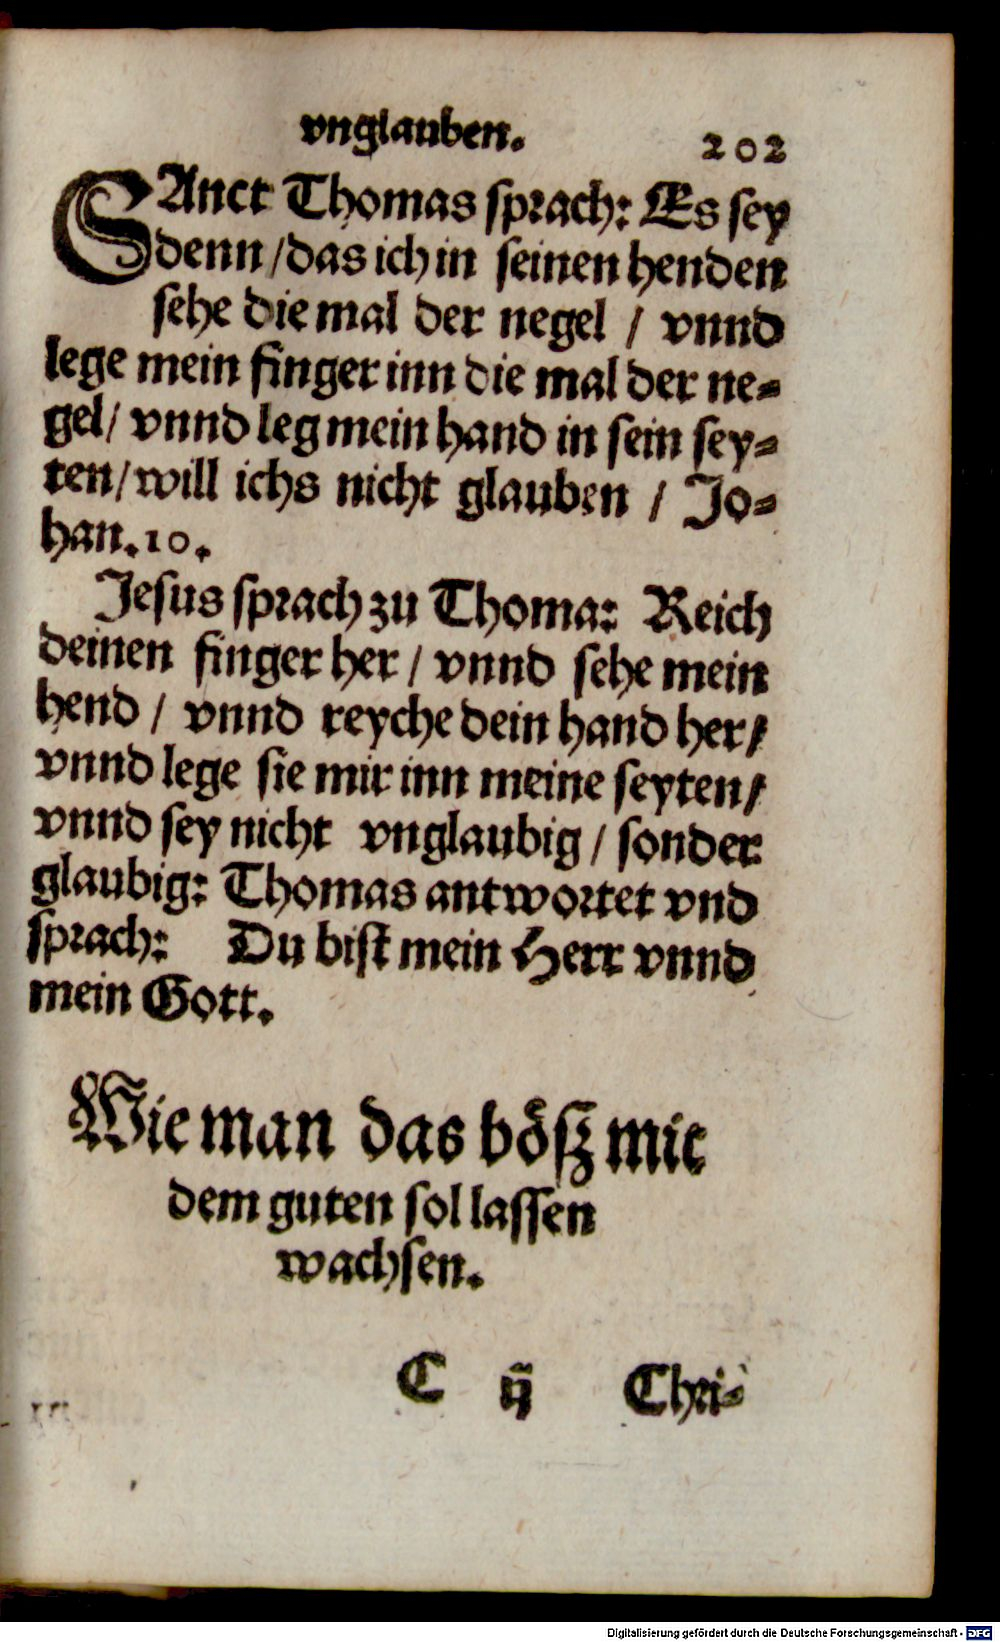 vnglauben. 202
SAnct Thomas sprach: Es sey
denn / das ich in seinen henden
sehe die mal der negel / vnnd
lege mein finger inn die mal der ne-
gel / vnnd leg mein hand in sein sey-
ten / will ichs nicht glauben / Jo-
han. 10.
Jesus sprach zu Thoma: Reich
deinen finger her / vnnd sehe mein
hend / vnnd reyche dein hand her /
vnnd lege sie mir inn meine seyten /
vnnd sey nicht vnglaubig / sonder
glaubig: Thomas antwortet vnd
sprach: Du bist mein Herr vnnd
mein Gott.
Wie man das böß mit
dem guten sol lassen
wachsen.
C ij Chri-
Digitalisierung gefördert durch die Deutsche Forschungsgemeinschaft - DFG